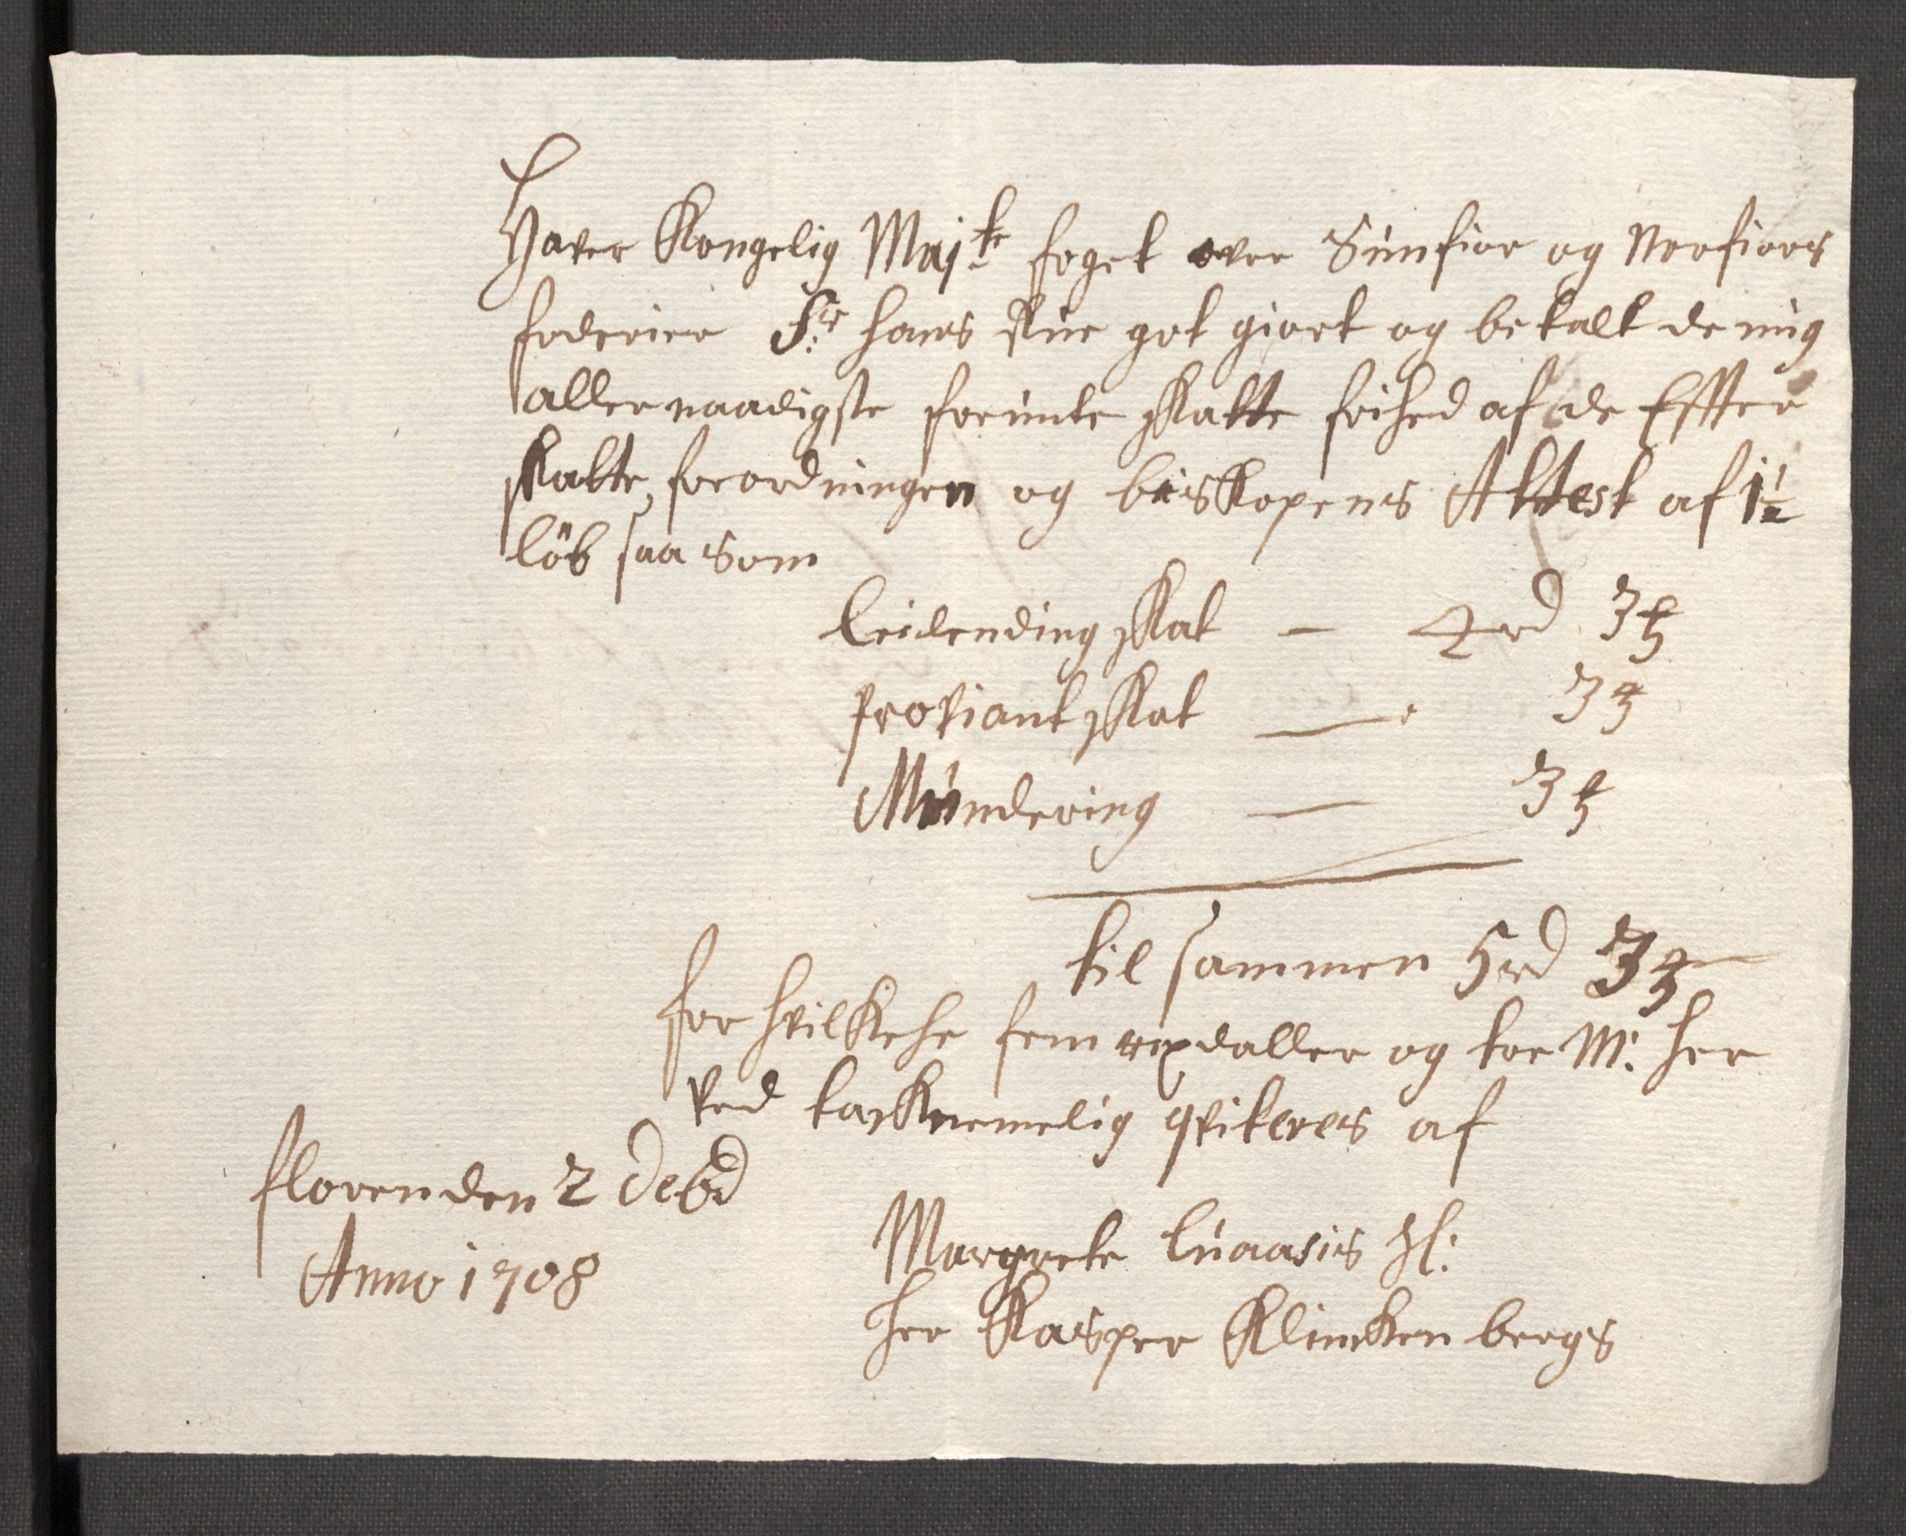 Haver Kongelig Maj:te foget over Sünfior og Norfiors
foderier Sr: Hans Rüe got giort og betalt de mig
aller naadigste forünte skatte frihed af de Effter
skatte forordningen og biskopens Attest af 1 1/2
löb saa som
leidending skat — 4 rd 3 ℥
proviant skat — 3 ℥
Mündering — 3 ℥
til sammen 5 rd 3 ℥
for hvilkehe fem rixdaller og tre M: her
ved tacknemelig qviteres af
floren den 2 Debd
Anno 1708
Margrete
her Kasper Klincken bergs